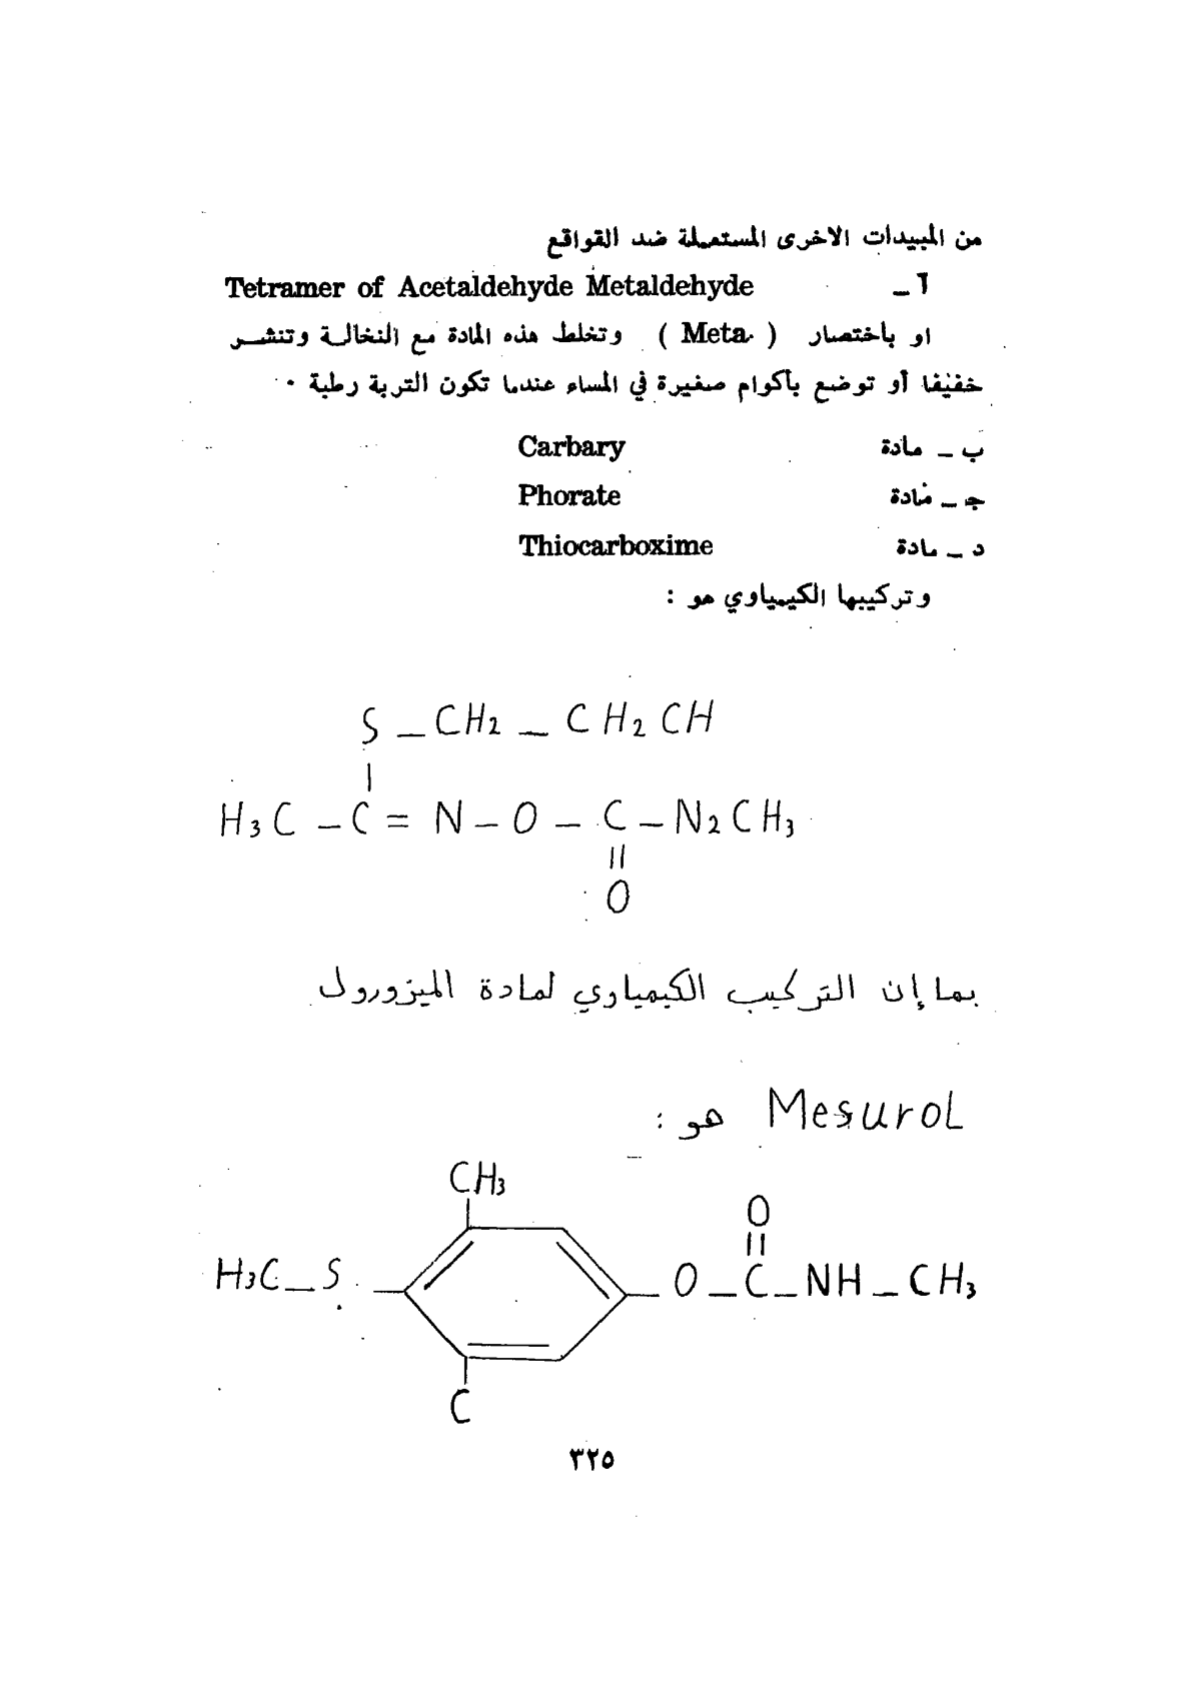 من المبيدات الاخرى المستعملة ضد القواقع
آ ـ Tetramer of Acetaldehyde Metaldehyde
او بأختصار ( Meta. ) وتخلط هذه المادة مع النخالة وتنشر
خفيفا أو توضع بأكوام صغيرة في المساء عندما تكون التربة رطبة .
ب ـ مادة Carbary
جـ ـ مادة Phorate
د ـ مادة Thiocarboxime
وتركيبها الكيمياوي هو :
S – CH2 – CH2 CH
|
H3C – C = N – O – C – N2CH3
||
O
بما إن التركيب الكيمياوي لمادة الميزورول
Mesurol هو :
CH3
O
||
H3C – S – – O – C – NH – CH3
C
٣٢٥